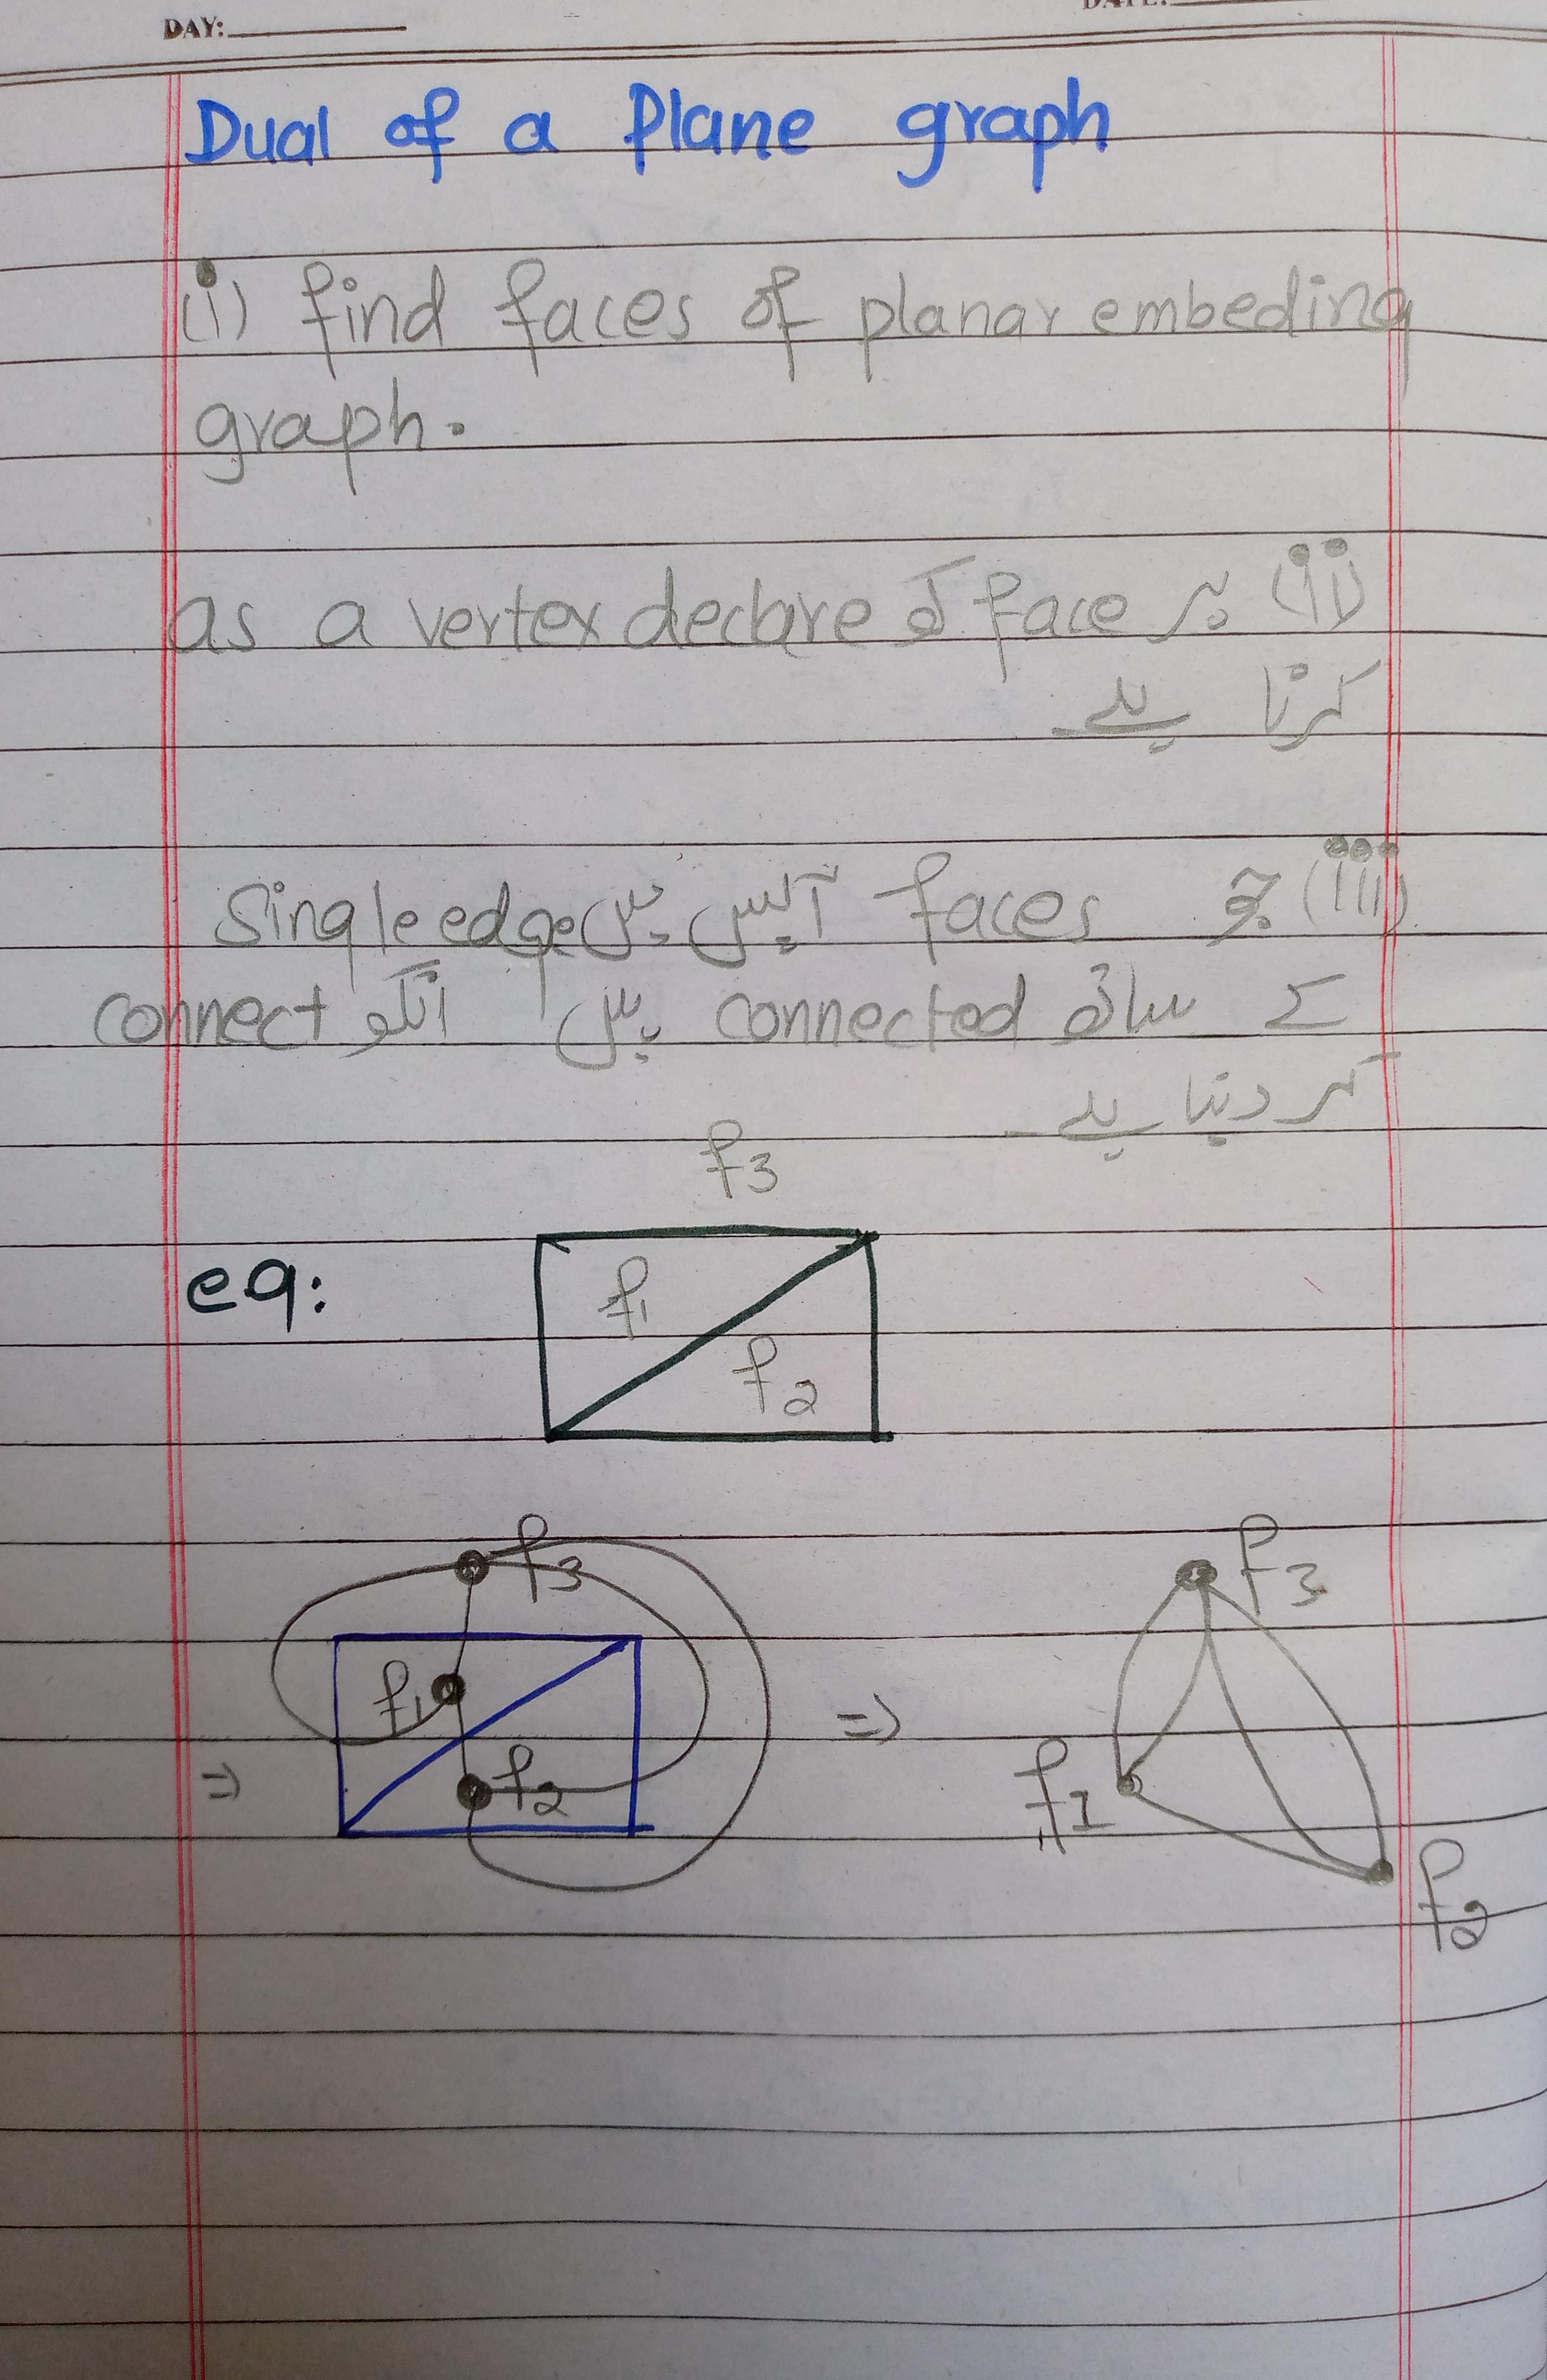 DAY:
DATE:
Dual of a Plane graph
(i) find faces of planar embeding
graph.
(ii) ہر face کو as a vertex declare
کرنا ہے۔
(iii) جو faces آپس میں single edge
کے ساتھ connected ہیں انکو connect
کر دینا ہے۔
f3
eg:
f1
f2
f3
f3
f1
=)
=)
f2
f1
f2